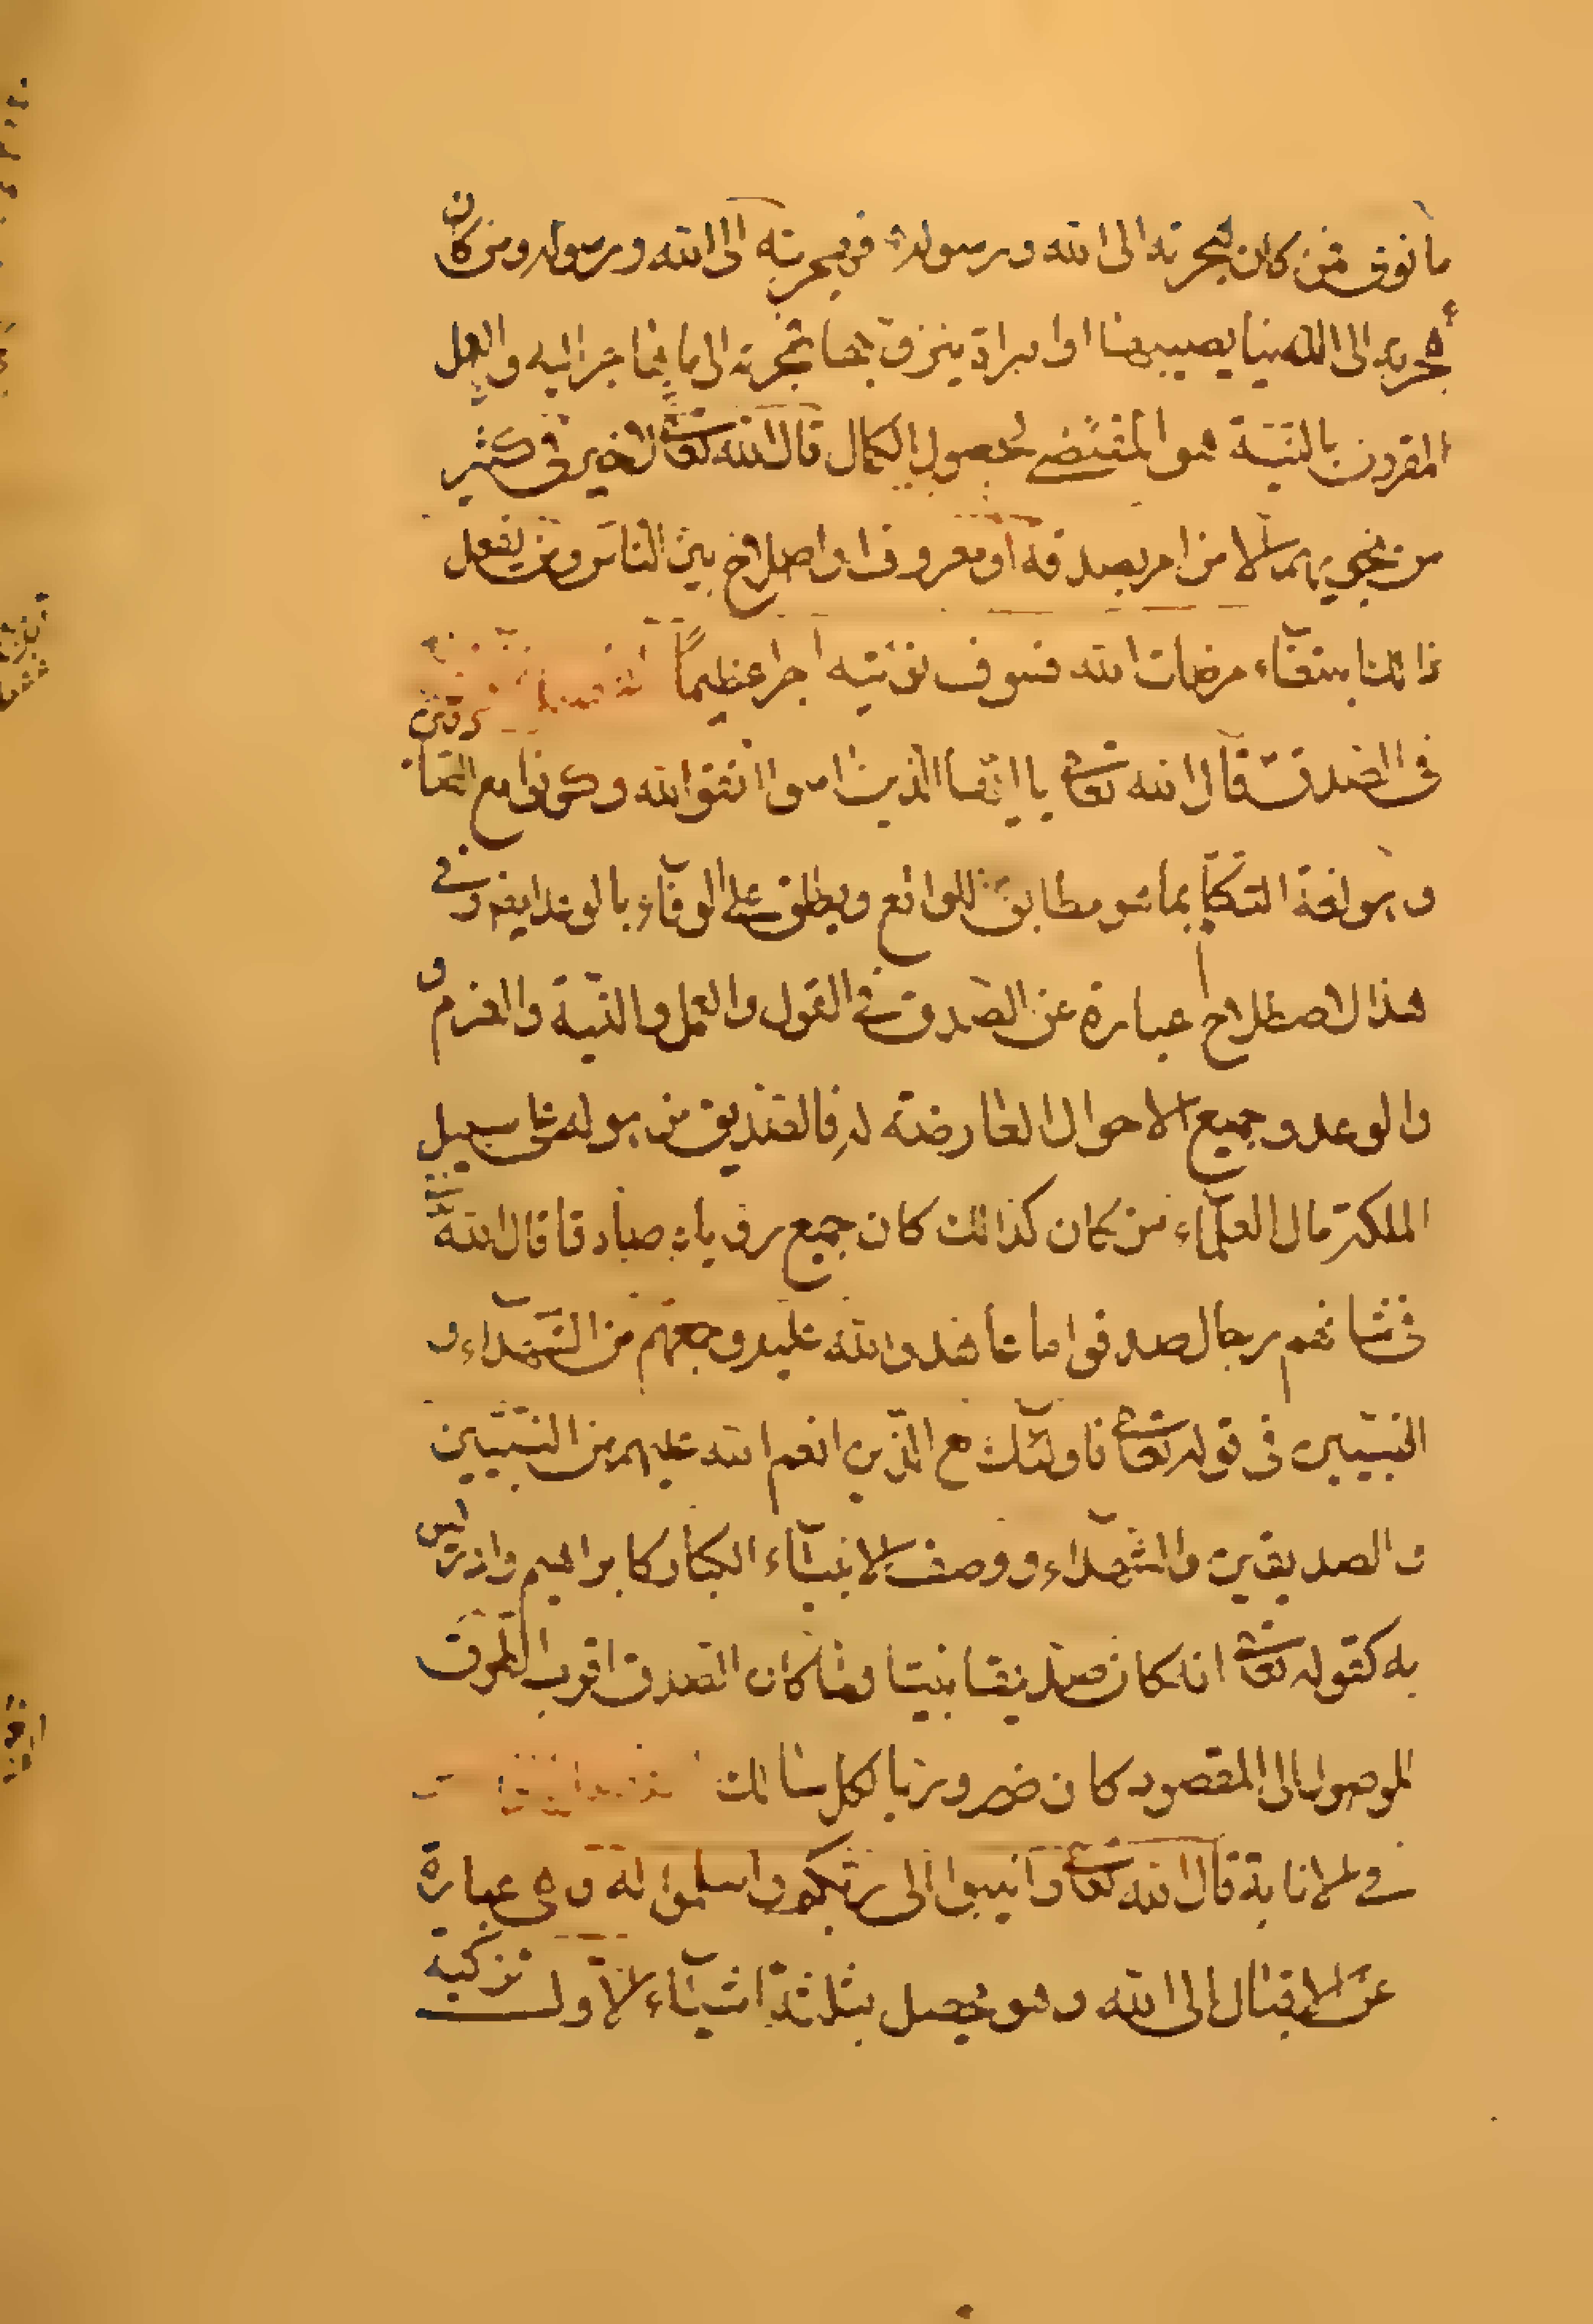 ما نوى فمن كان هجرته الى الله ورسوله فهجرته الى الله ورسوله ومن كان
هجرته الى الدنيا يصيبها او امراة يتزوج بها فهجرته الى ما هاجر اليه والعمل
المقرون بالنية هو المقتضى لحصول الكمال قال الله تعالى لا خير في كثير
من نجويهم الا من امر بصدقة او معروف او اصلاح بين الناس ومن يفعل
ذالك ابتغاء مرضات الله فسوف نؤتيه اجرا عظيماً
في الصدق قال الله تعالى يا ايها الذين امنوا اتقوا الله وكونوا مع
وهو لغة التكلم بما هو مطابق للواقع ويطلق على الوفاء بالوعد ايضا وفي
هذا الاصطلاح عبارة عن الصدق في القول والعمل والنية والعزم و
والوعد وجميع الاحوال العارضة له فالصديق من هو له على سبيل
الملكة قال العلماء من كان كذالك كان جميع رؤياه صادقا قال الله
في شانهم رجال صدقوا ما عاهدوا الله عليه وجمعهم من الشهداء و
النبيين في قوله تعالى فاولئك مع الذين انعم الله عليهم من النبيين
والصديقين والشهداء ووصف الانبياء الكبار كابراهيم وادريس
به كقوله تعالى انه كان صديقا نبيا ولما كان الصدق اقرب الطرق
الموصول الى المقصود كان ضروريا لكل سالك
في الانابة قال الله تعالى وانيبوا الى ربكم واسلموا له وهى عبارة
عن الاقبال الى الله وهو يحصل بثلثة اشياء الاول تزكية